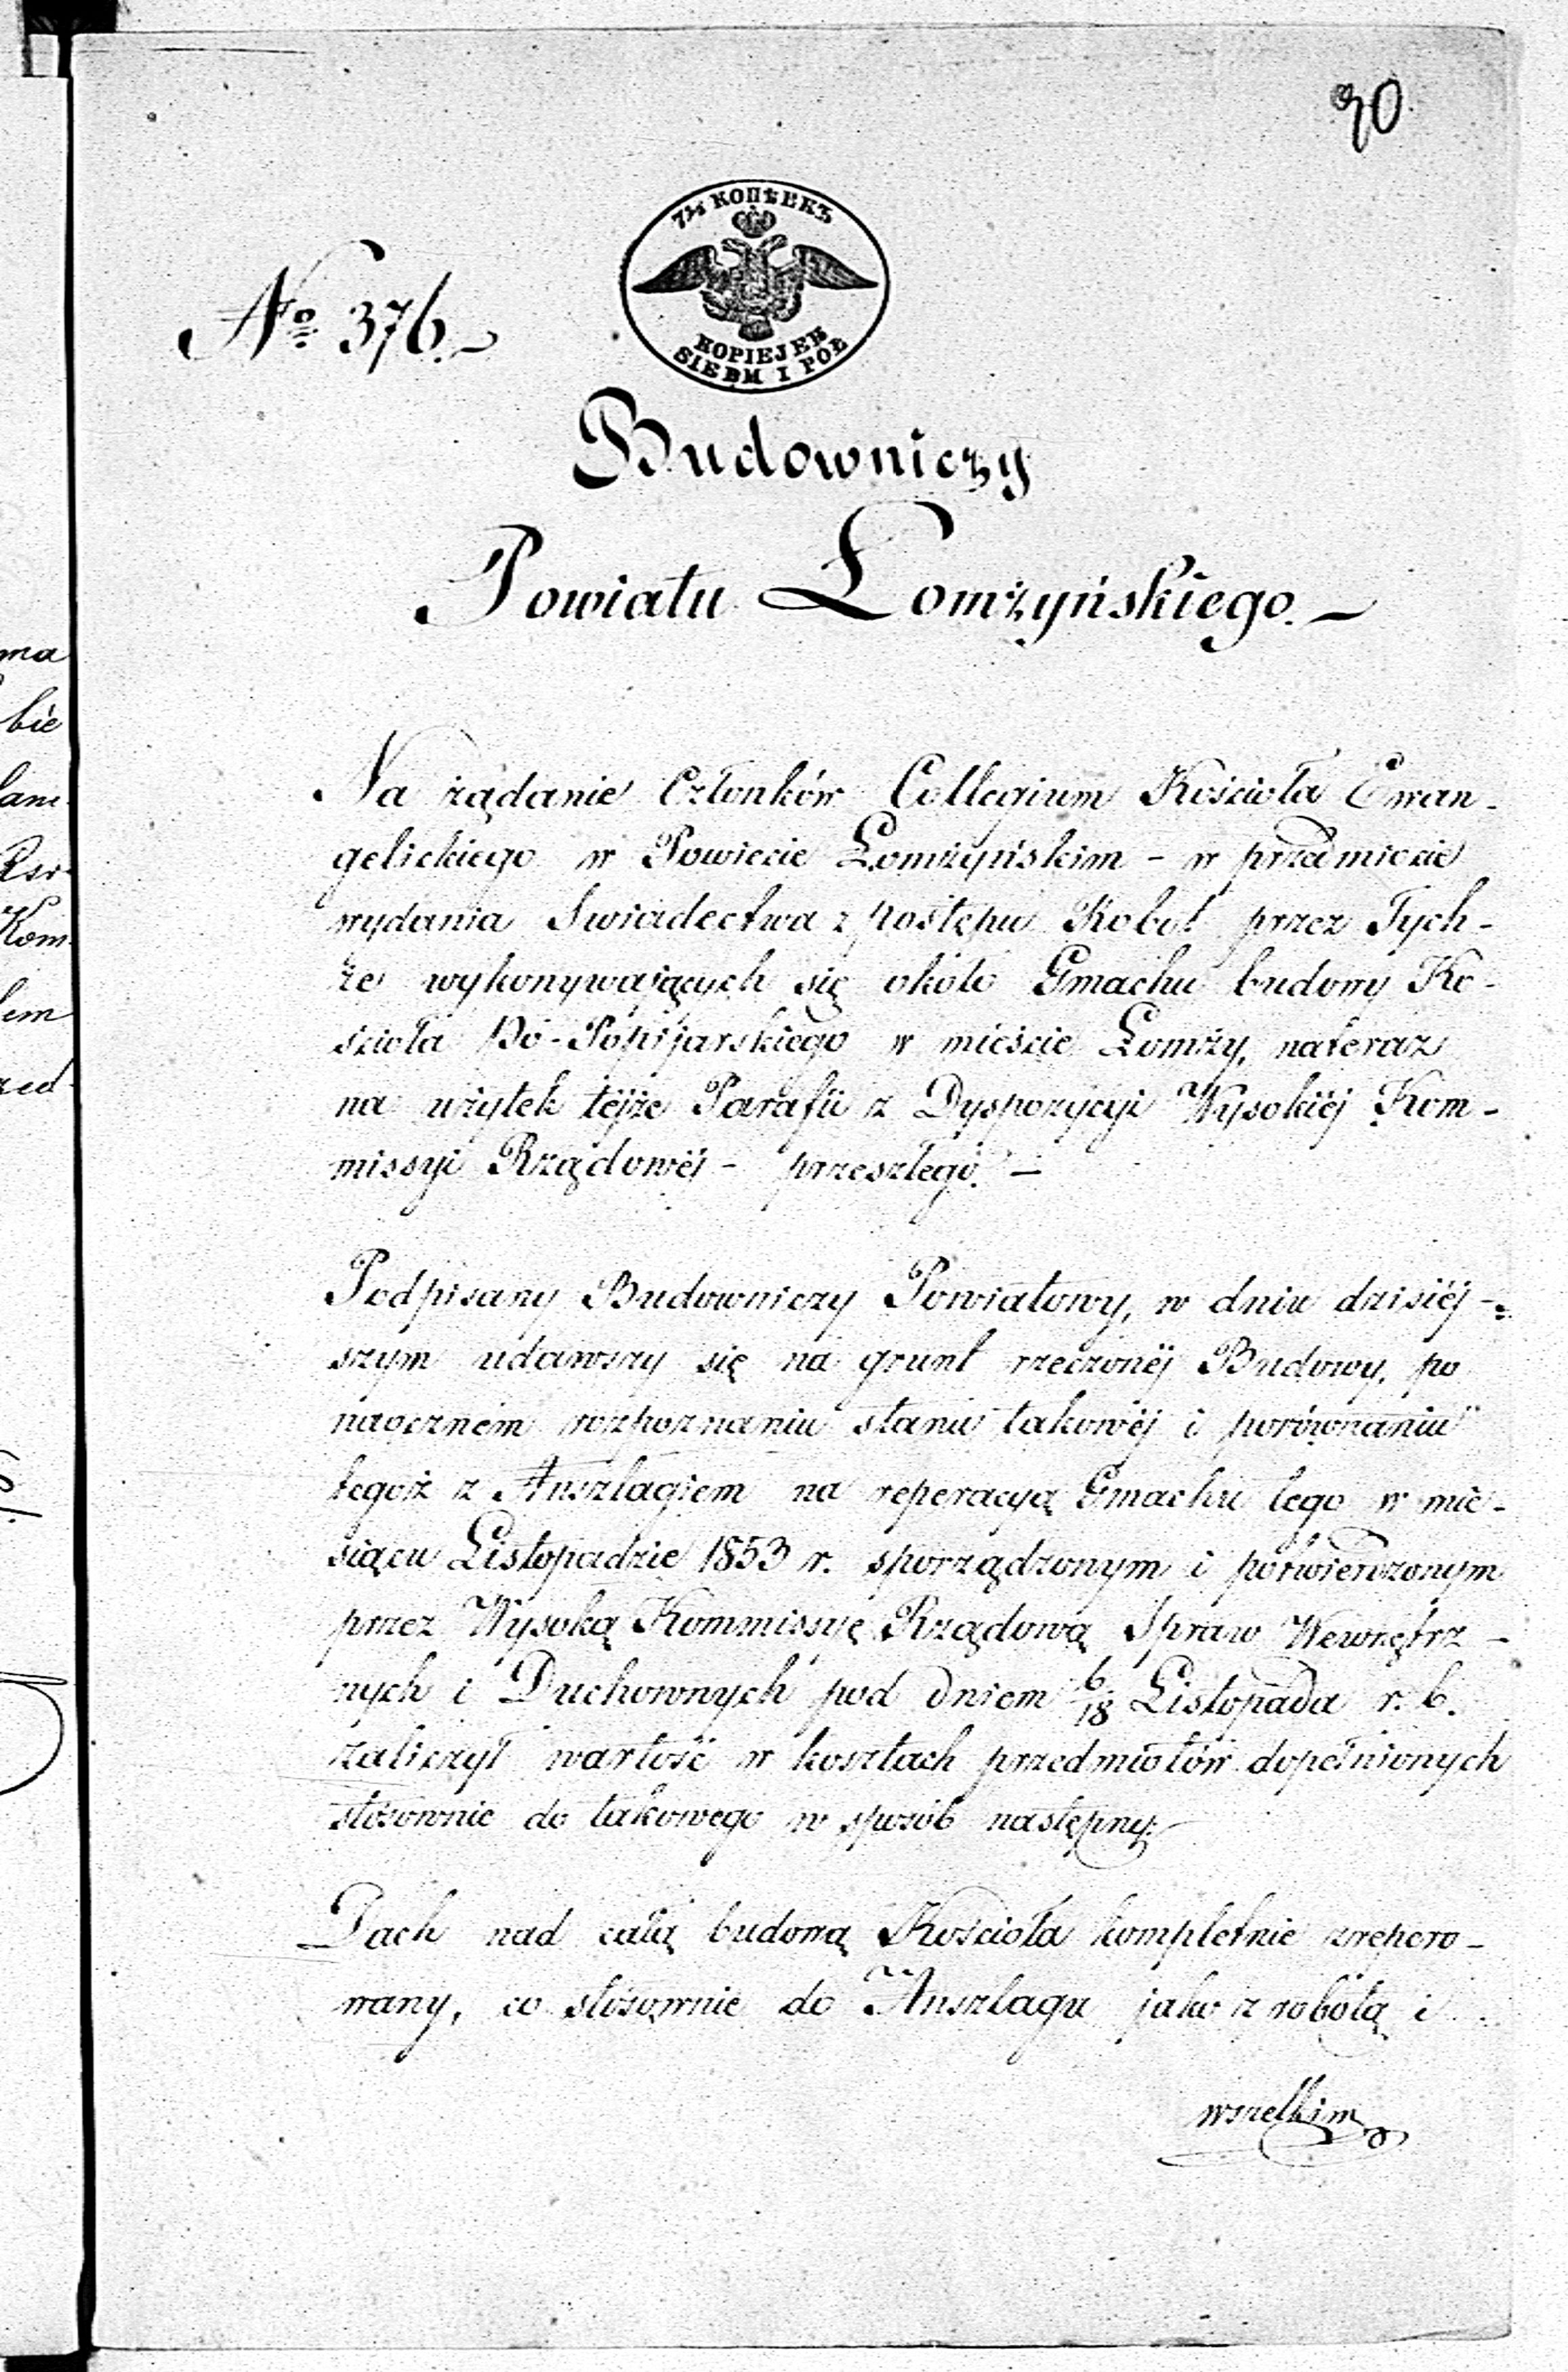 90
7½ КОПѢЕКЪ
KOPIEJEK
SIEDM I PÓŁ
№ 376.-
Budowniczy
Powiatu Łomżyńskiego.-
Na żądanie Członków Collegium Kościoła Ewan-
gelickiego w Powiecie Łomżyńskim - w przedmiocie
wydania Swiadectwa z postępu Robot przez Tych-
że wykonywających się około Gmachu budowy Ko-
ścioła Po-Popijarskiego w mieście Łomży, nateraz
na użytek tejże Parafii z Dyspozycyi Wysokiéj Kom-
missyi Rządowéj - przeszłego.-
Podpisany Budowniczy Powiatowy, w dniu dzisiéj-
szym udawszy się na grunt rzeczonéj Budowy, po
naocznem rozpoznaniu stanu takowéj i porównaniu
tegoż z Anszlagiem na reperacyą Gmachu tego w mie-
siącu Listopadzie 1853 r. sporządzonym i potwierdzonym
przez Wysoką Kommissyę Rządową Spraw Wewnętrz-
nych i Duchownych pod dniem 6/18 Listopada r. b.
zaliczył wartość w kosztach przedmiotów dopełnionych
stósownie do takowego w sposób następny:
Dach nad całą budową Kościoła kompletnie zrepero-
wany, co stósownie do Anszlagu jako z robotą i
wszelkim
ma
bie
lam
Kom
em
zed-